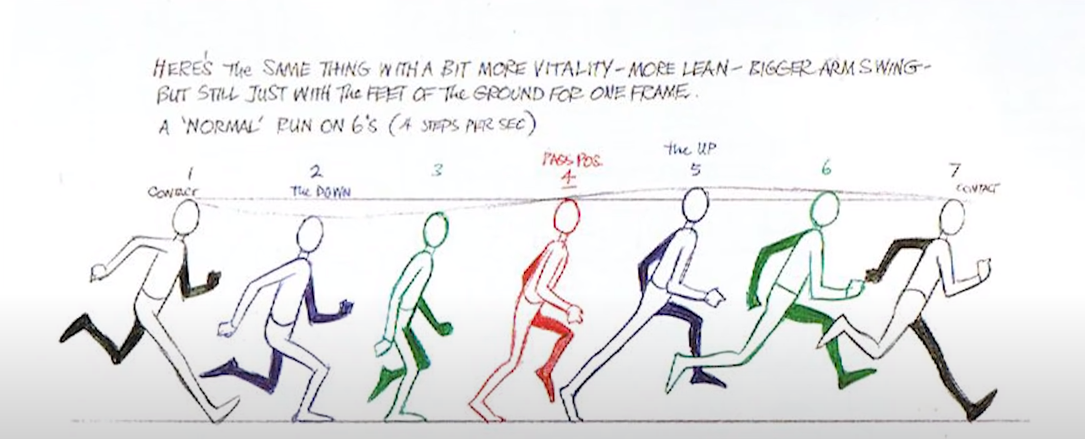 HERE'S The SAME THING WITH A BIT MORE VITALITY - MORE LEAN - BIGGER ARM SWING -
BUT STILL JUST WITH The FEET OF The GROUND FOR ONE FRAME.
A 'NORMAL' RUN ON 6'S (4 STEPS PER SEC)
1
CONTACT
2
The DOWN
3
PASS POS
4
the UP
5
6
7
CONTACT